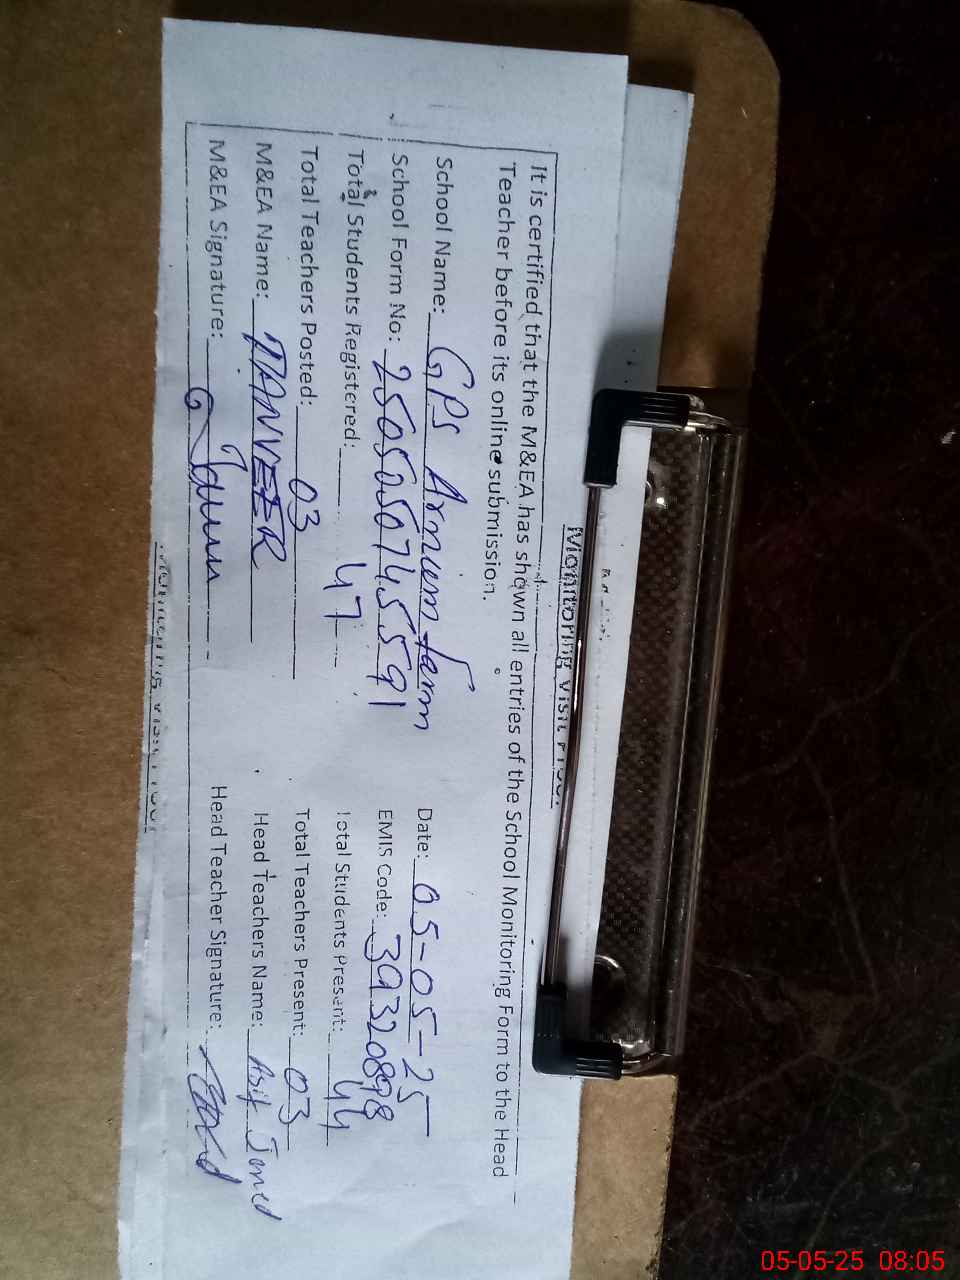 Monitoring Visit Proof
It is certified that the M&EA has shown all entries of the School Monitoring Form to the Head
Teacher before its online submission.
School Name: GPS Arniem farm Date: 05-05-25
School Form No: 2505050745591 EMIS Code: 39320898
Total Students Registered: 47 Total Students Present: 44
Total Teachers Posted: 03 Total Teachers Present: 03
M&EA Name: TANVEER Head Teachers Name: Asif Javed
M&EA Signature: Head Teacher Signature:
Monitoring Visit Proof
05-05-25 08:05